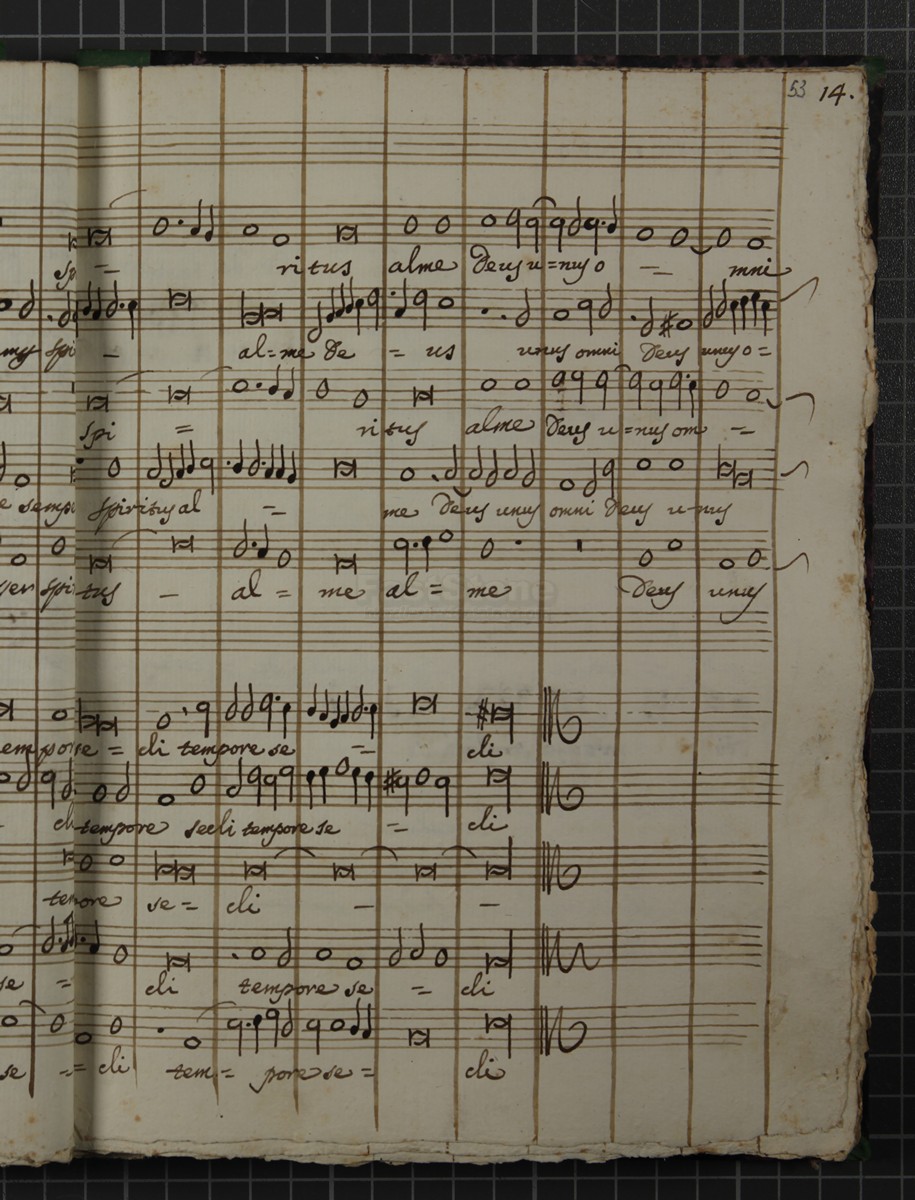 53 14.
spi = ritus alme Deus u=nus o — mni
spi — al=me De = us unus omni Deus unus o=
spi = ritus alme Deus u=nus om —
e semp spiritus al = me Deus unus omni Deus u-nus
spi tus — al = me al = me Deus unus
empore = cli tempore se — cli
cli tempore secli tempore se = cli
tenore se = cli — —
se = cli tempore se = cli
se = cli tem= pore se = cli